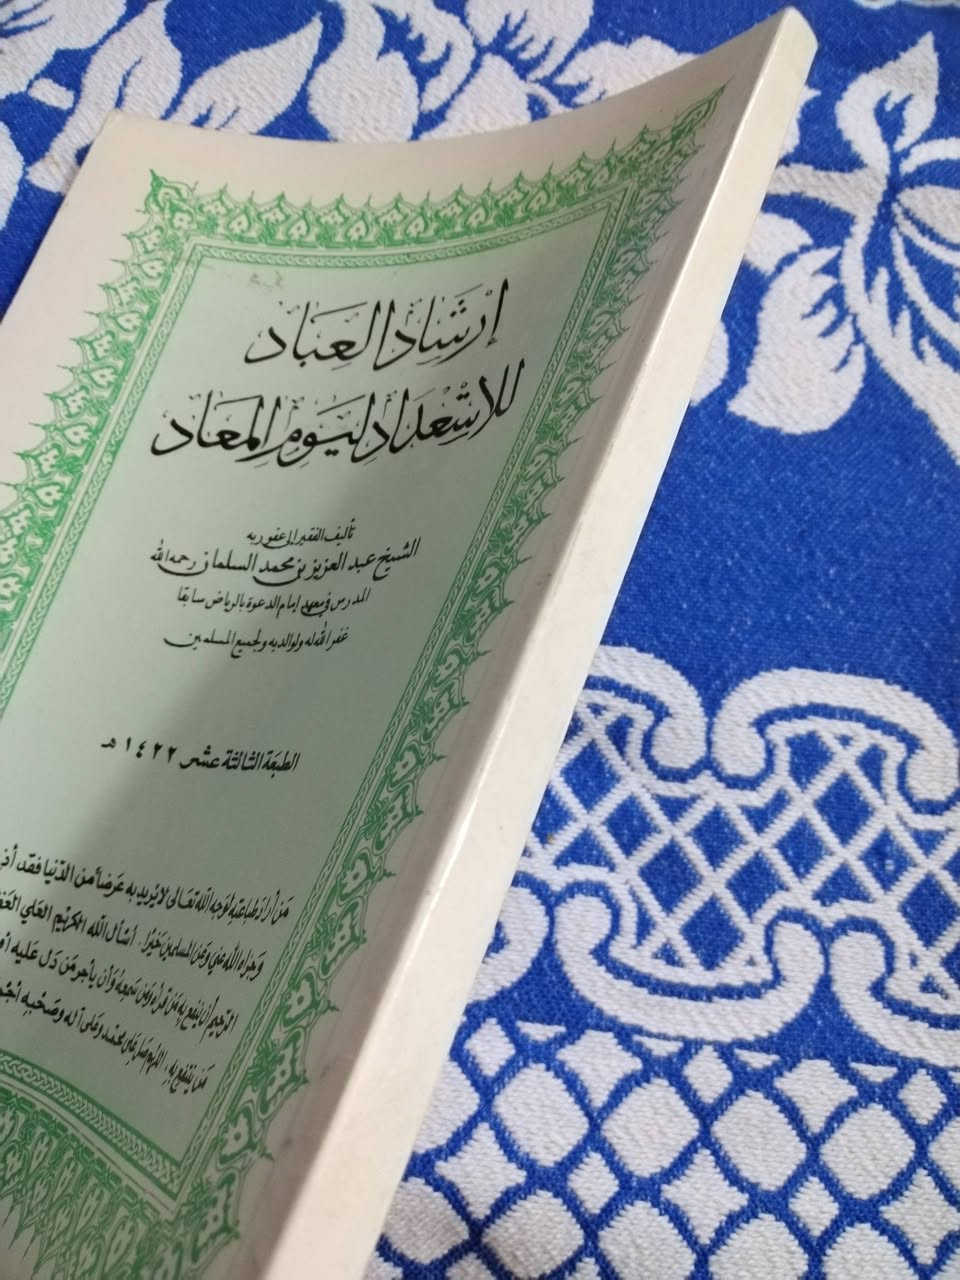 إرشاد العباد
للاستعداد ليوم المعاد
تأليف الفقير إلى عفو ربه
الشيخ عبد العزيز بن محمد السلمان رحمه الله
المدرس في معهد إمام الدعوة بالرياض سابقا
غفر الله له ولوالديه ولجميع المسلمين
الطبعة الثالثة عشر ١٤٢٢ هـ
من أراد طباعته لوجه الله تعالى لا يريد به عرضا من الدنيا فقد أذن
وجزاه الله عني وعن المسلمين خيرا. أسأل الله الكريم العلي
الرحيم أن ينفع به من قرأه ومن سمعه وأن يأجر من دل عليه أو
من ينتفع به. اللهم صل على محمد وعلى آله وصحبه